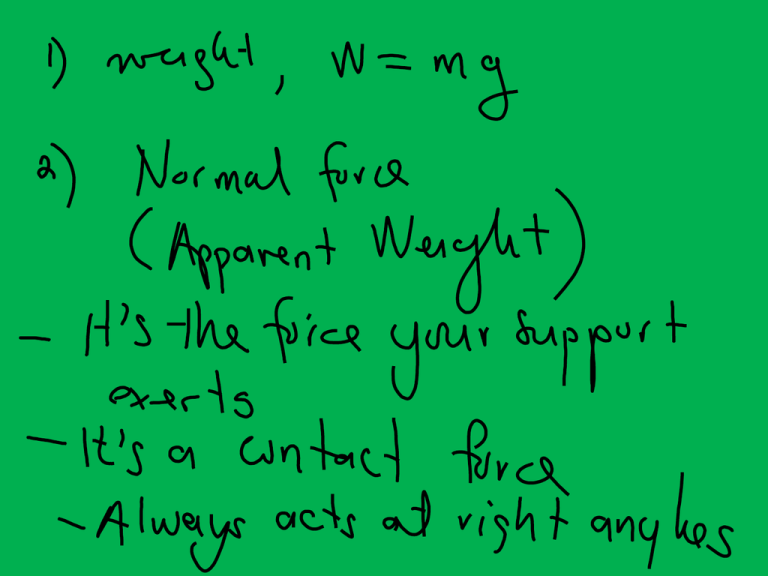 1) weight, W = mg
2) Normal force
(Apparent Weight)
- It's the force your support
exerts
- It's a contact force
- Always acts at right angles